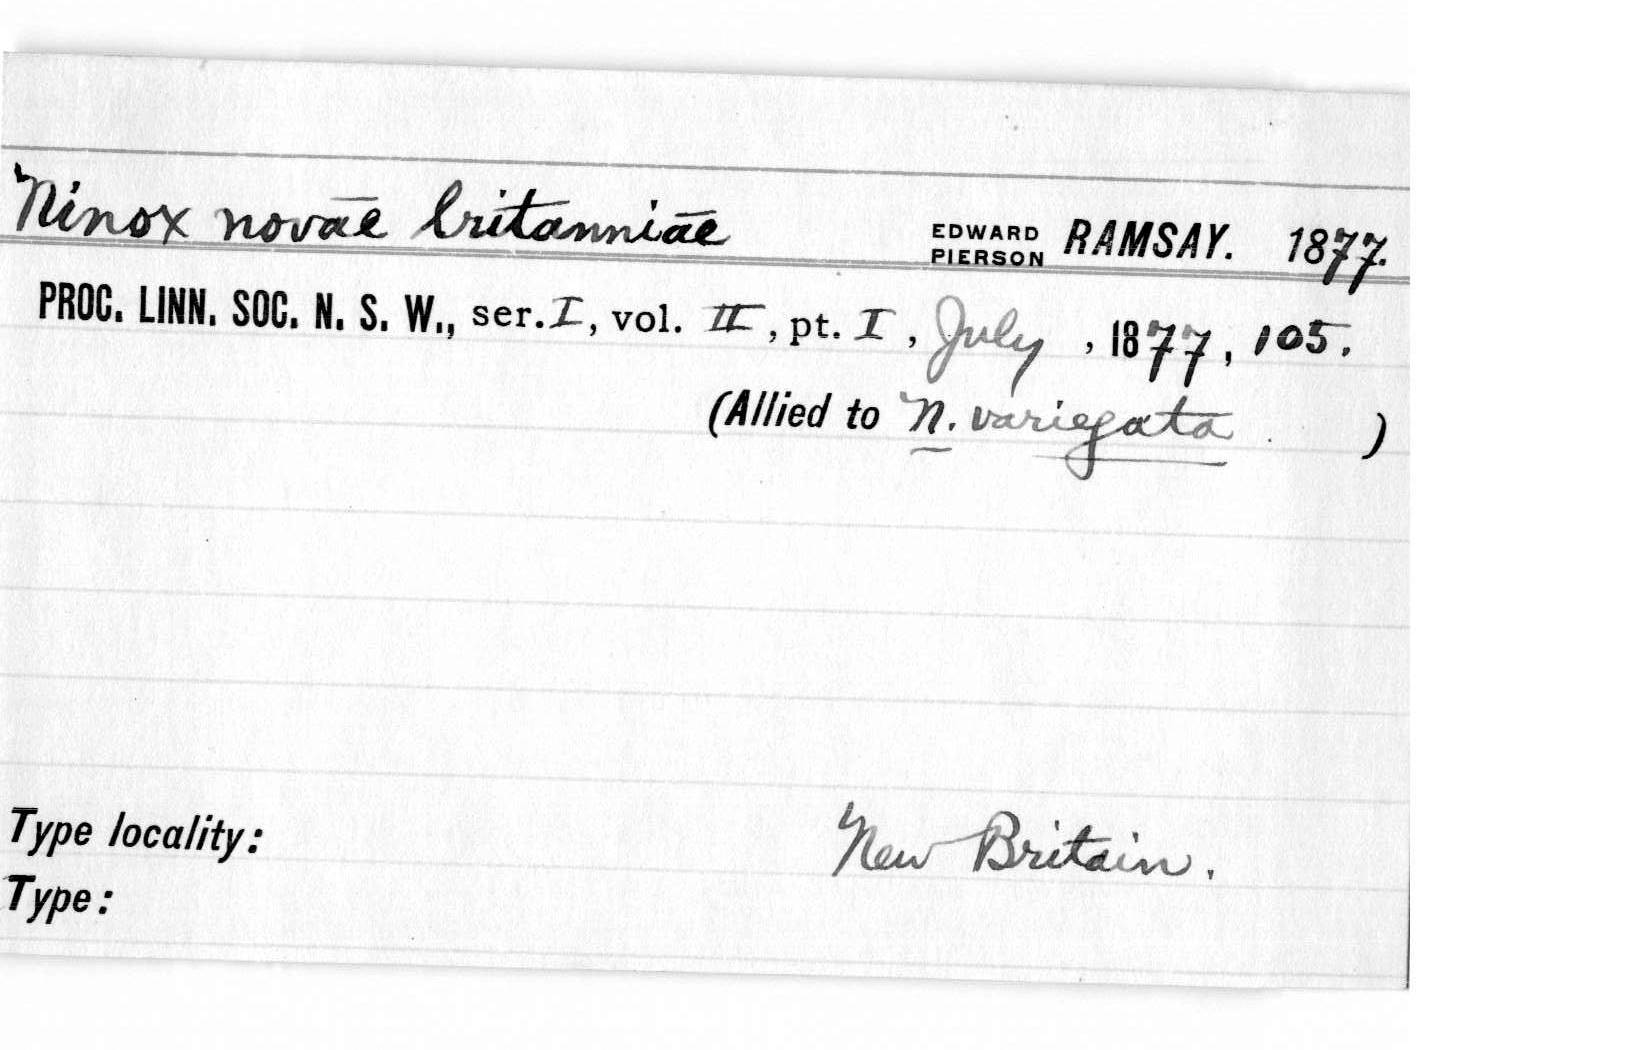 Ninox novae britanniae EDWARD PIERSON RAMSAY. 1877.
PROC. LINN. SOC. N. S. W., ser. I, vol. II, pt. I, July, 1877, 105.
(Allied to N. variegata )
Type locality: New Britain.
Type: